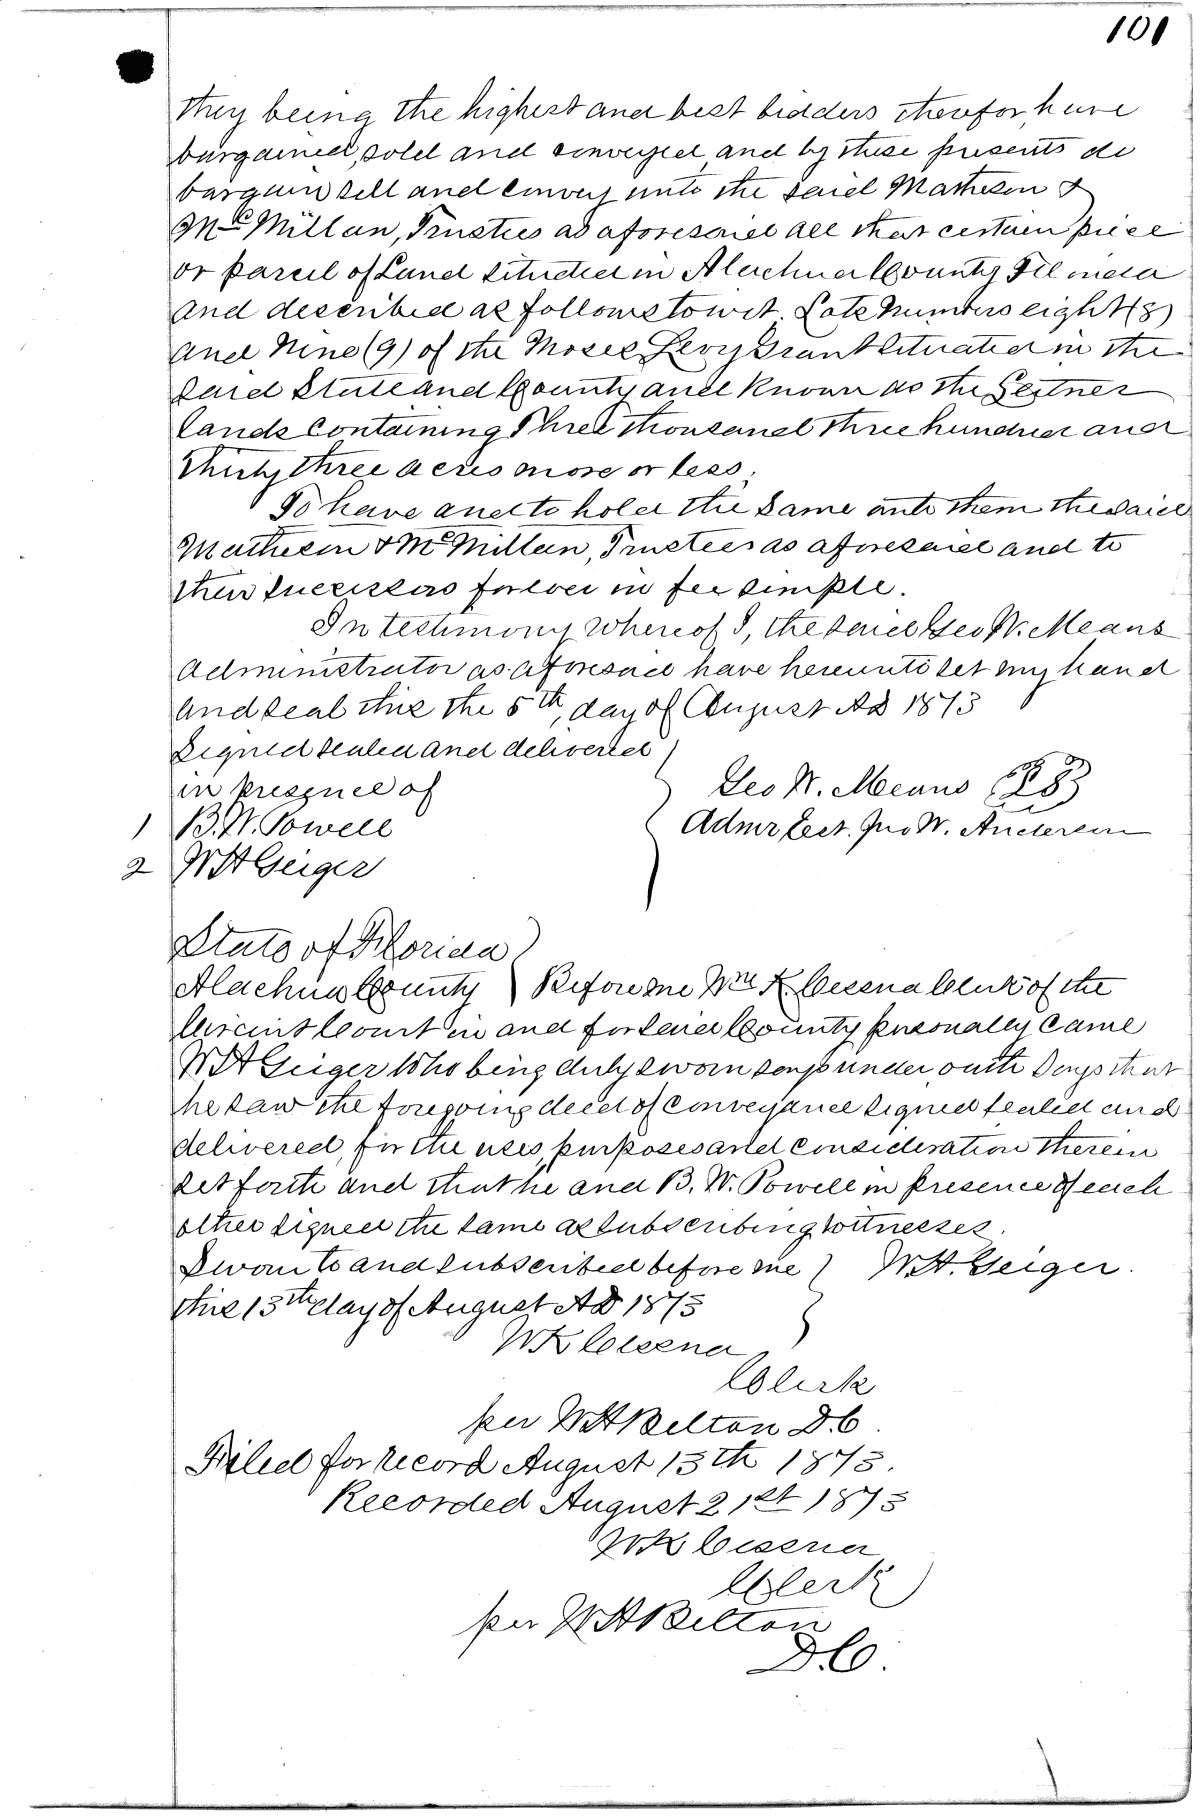 101
they being the highest and best bidders therefor, have
bargained, sold and conveyed, and by these presents do
bargain sell and convey unto the said Matheson &
McMillan, Trustees as aforesaid all that certain piece
or parcel of Land situated in Alachua County Florida
and described as follows towit. Lots numbers eight (8)
and Nine (9) of the Moses Levy Grant situated in the
said State and County and known as the Leitner
lands containing Three thousand three hundred and
thirty three acres more or less.
To have and to hold the same unto them the said
Matheson & McMillan, Trustees as aforesaid and to
their successors forever in fee simple.
In testimony whereof I, the said Geo W. Means
Administrator as aforesaid have hereunto set my hand
and seal this the 5th, day of August AD 1873
Signed sealed and delivered
in presence of
Geo W. Means
1 B. W. Powell
Admr Est. Jno W. Anderson
2 W H Geiger
State of Florida
Alachua County } Before me Wm K. Cessna Clerk of the
Circuit Court in and for said County personally came
W H Geiger Who being duly sworn says under oath Says that
he saw the foregoing deed of conveyance signed sealed and
delivered, for the uses, purposes and consideration therein
set forth and that he and B. W. Powell in presence of each
other signed the same as subscribing witnesses.
Sworn to and subscribed before me } W. H. Geiger.
this 13th day of August AD 1873
W K Cessna
Clerk
per W H Belton D.C.
Filed for record August 13th 1873.
Recorded August 21st 1873
W K Cessna
Clerk
per W H Belton
D.C.